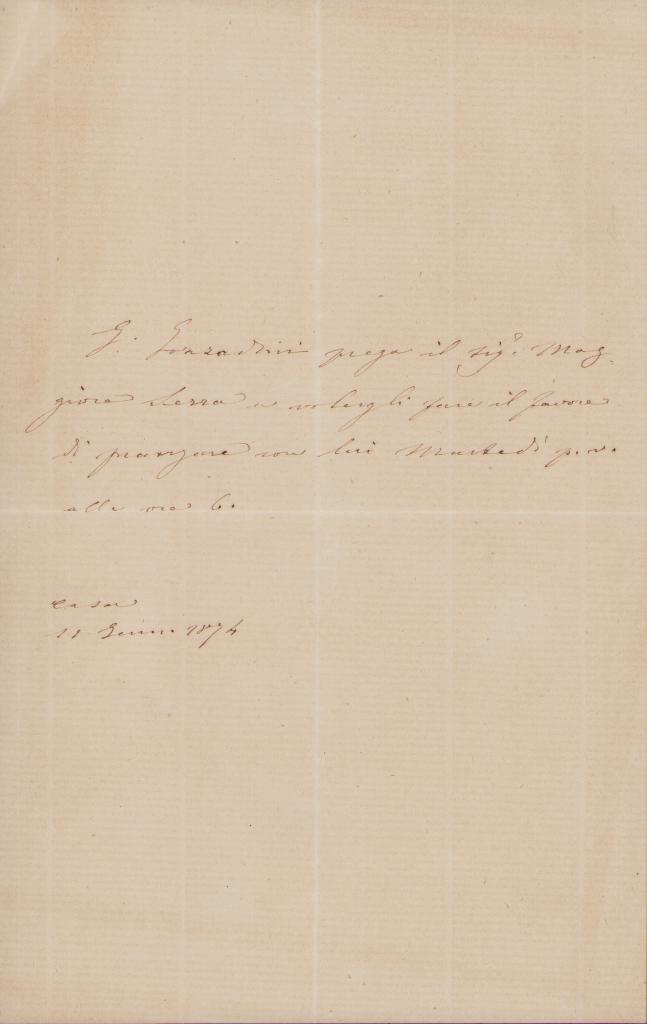 G. Gozzadini prega il Sigr. Mag-
giore Sezza a volergli fare il favore
di pranzare con lui Martedì p.v.
alle ore 6.
Casa
11 Genn. 1874